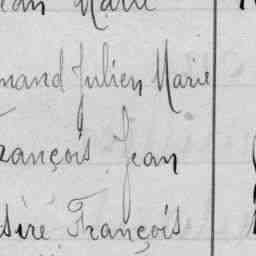 ean Marie
mand Julien Marie
rançois Jean
sire François